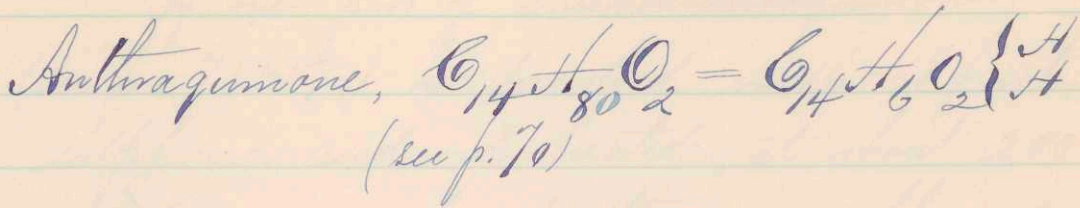 Anthraquinone, C₁₄H₈₀O₂ = C₁₄H₆O₂{H H
(see p. 70)